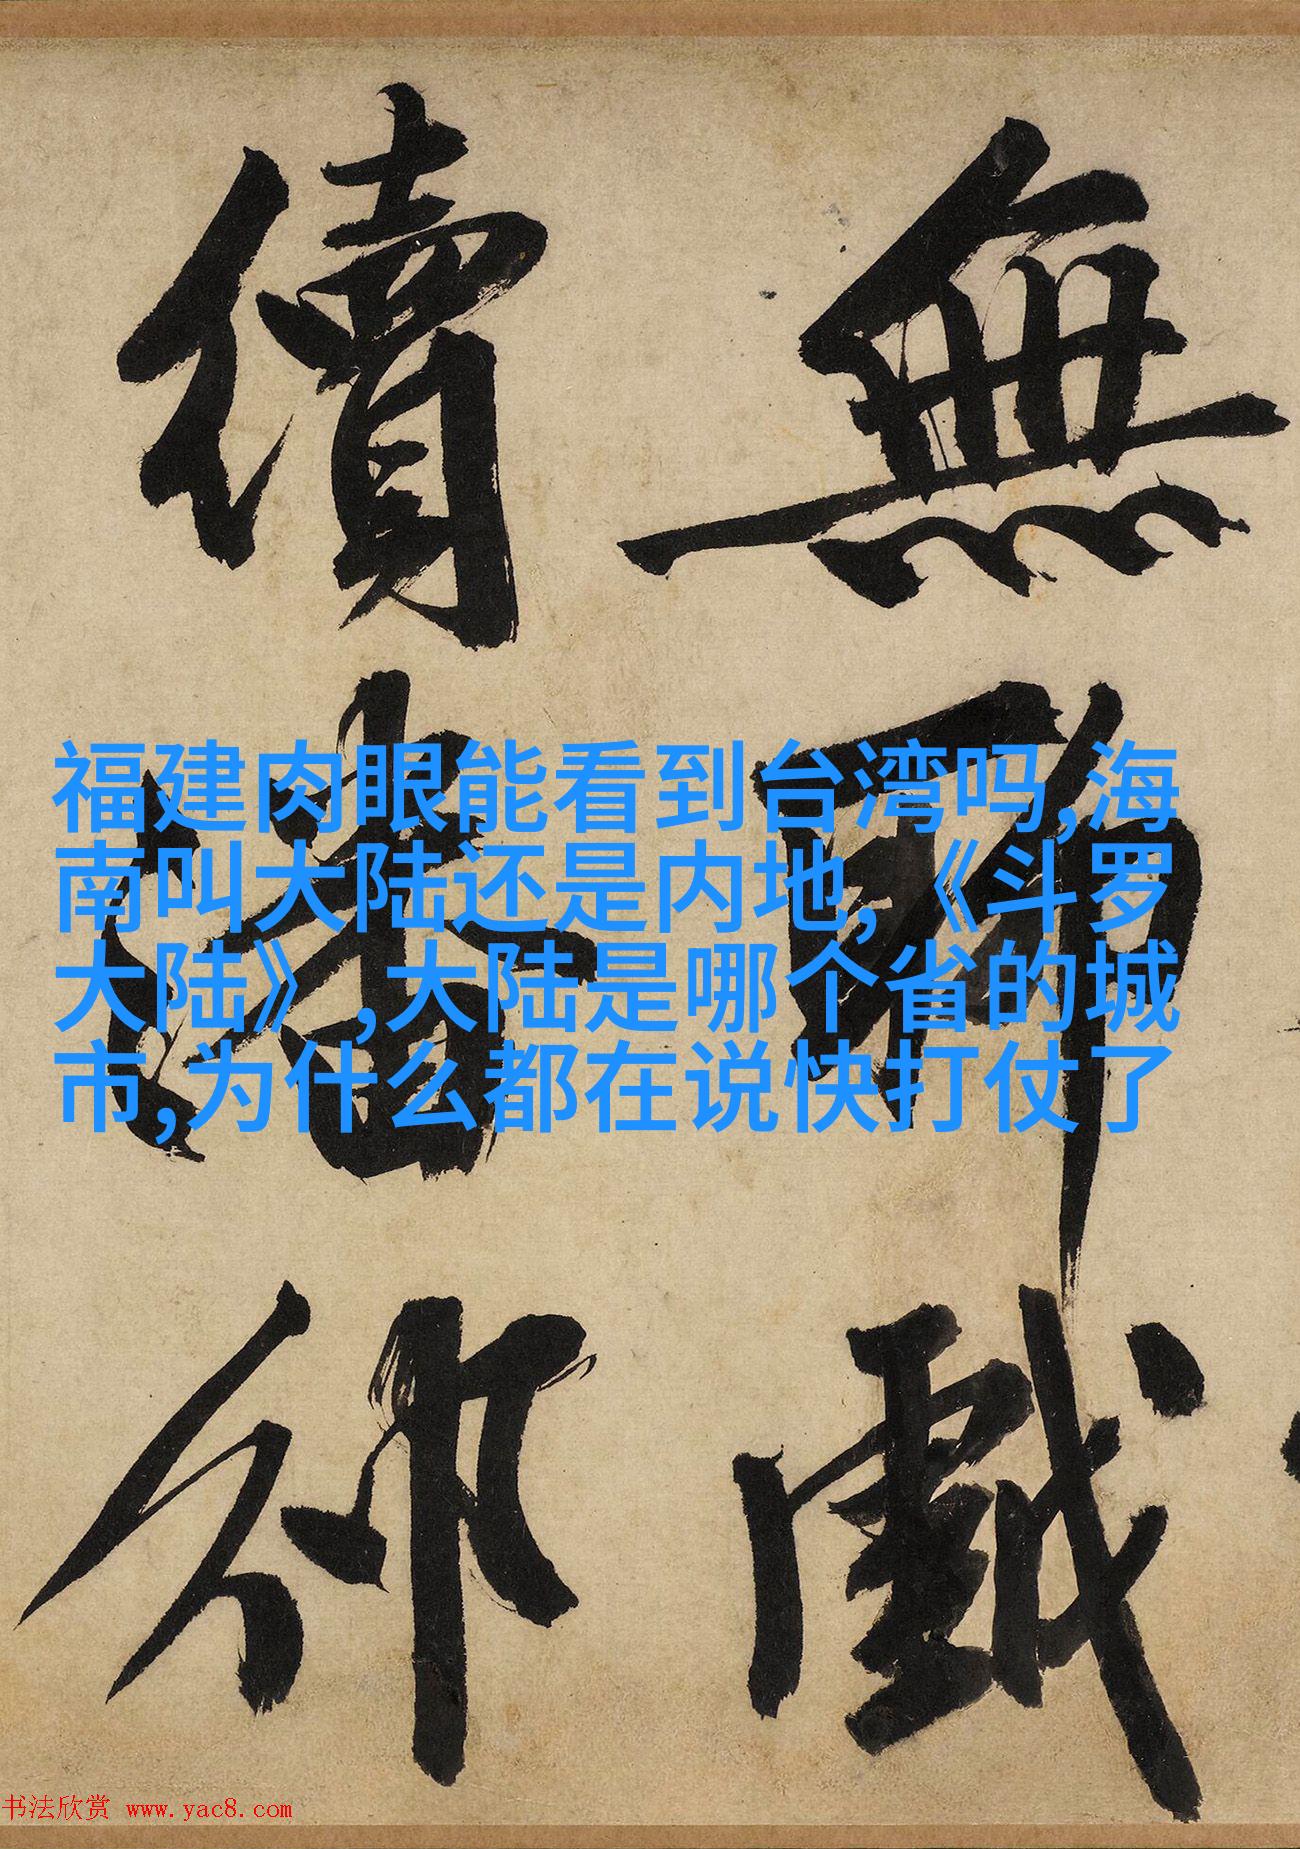 無聊戲
續潘邠
福建肉眼能看到台湾吗,海
南叫大陆还是内地,《斗罗
大陆》,大陆是哪个省的城
市,为什么都在说快打仗了
书法欣赏 www.yac8.com